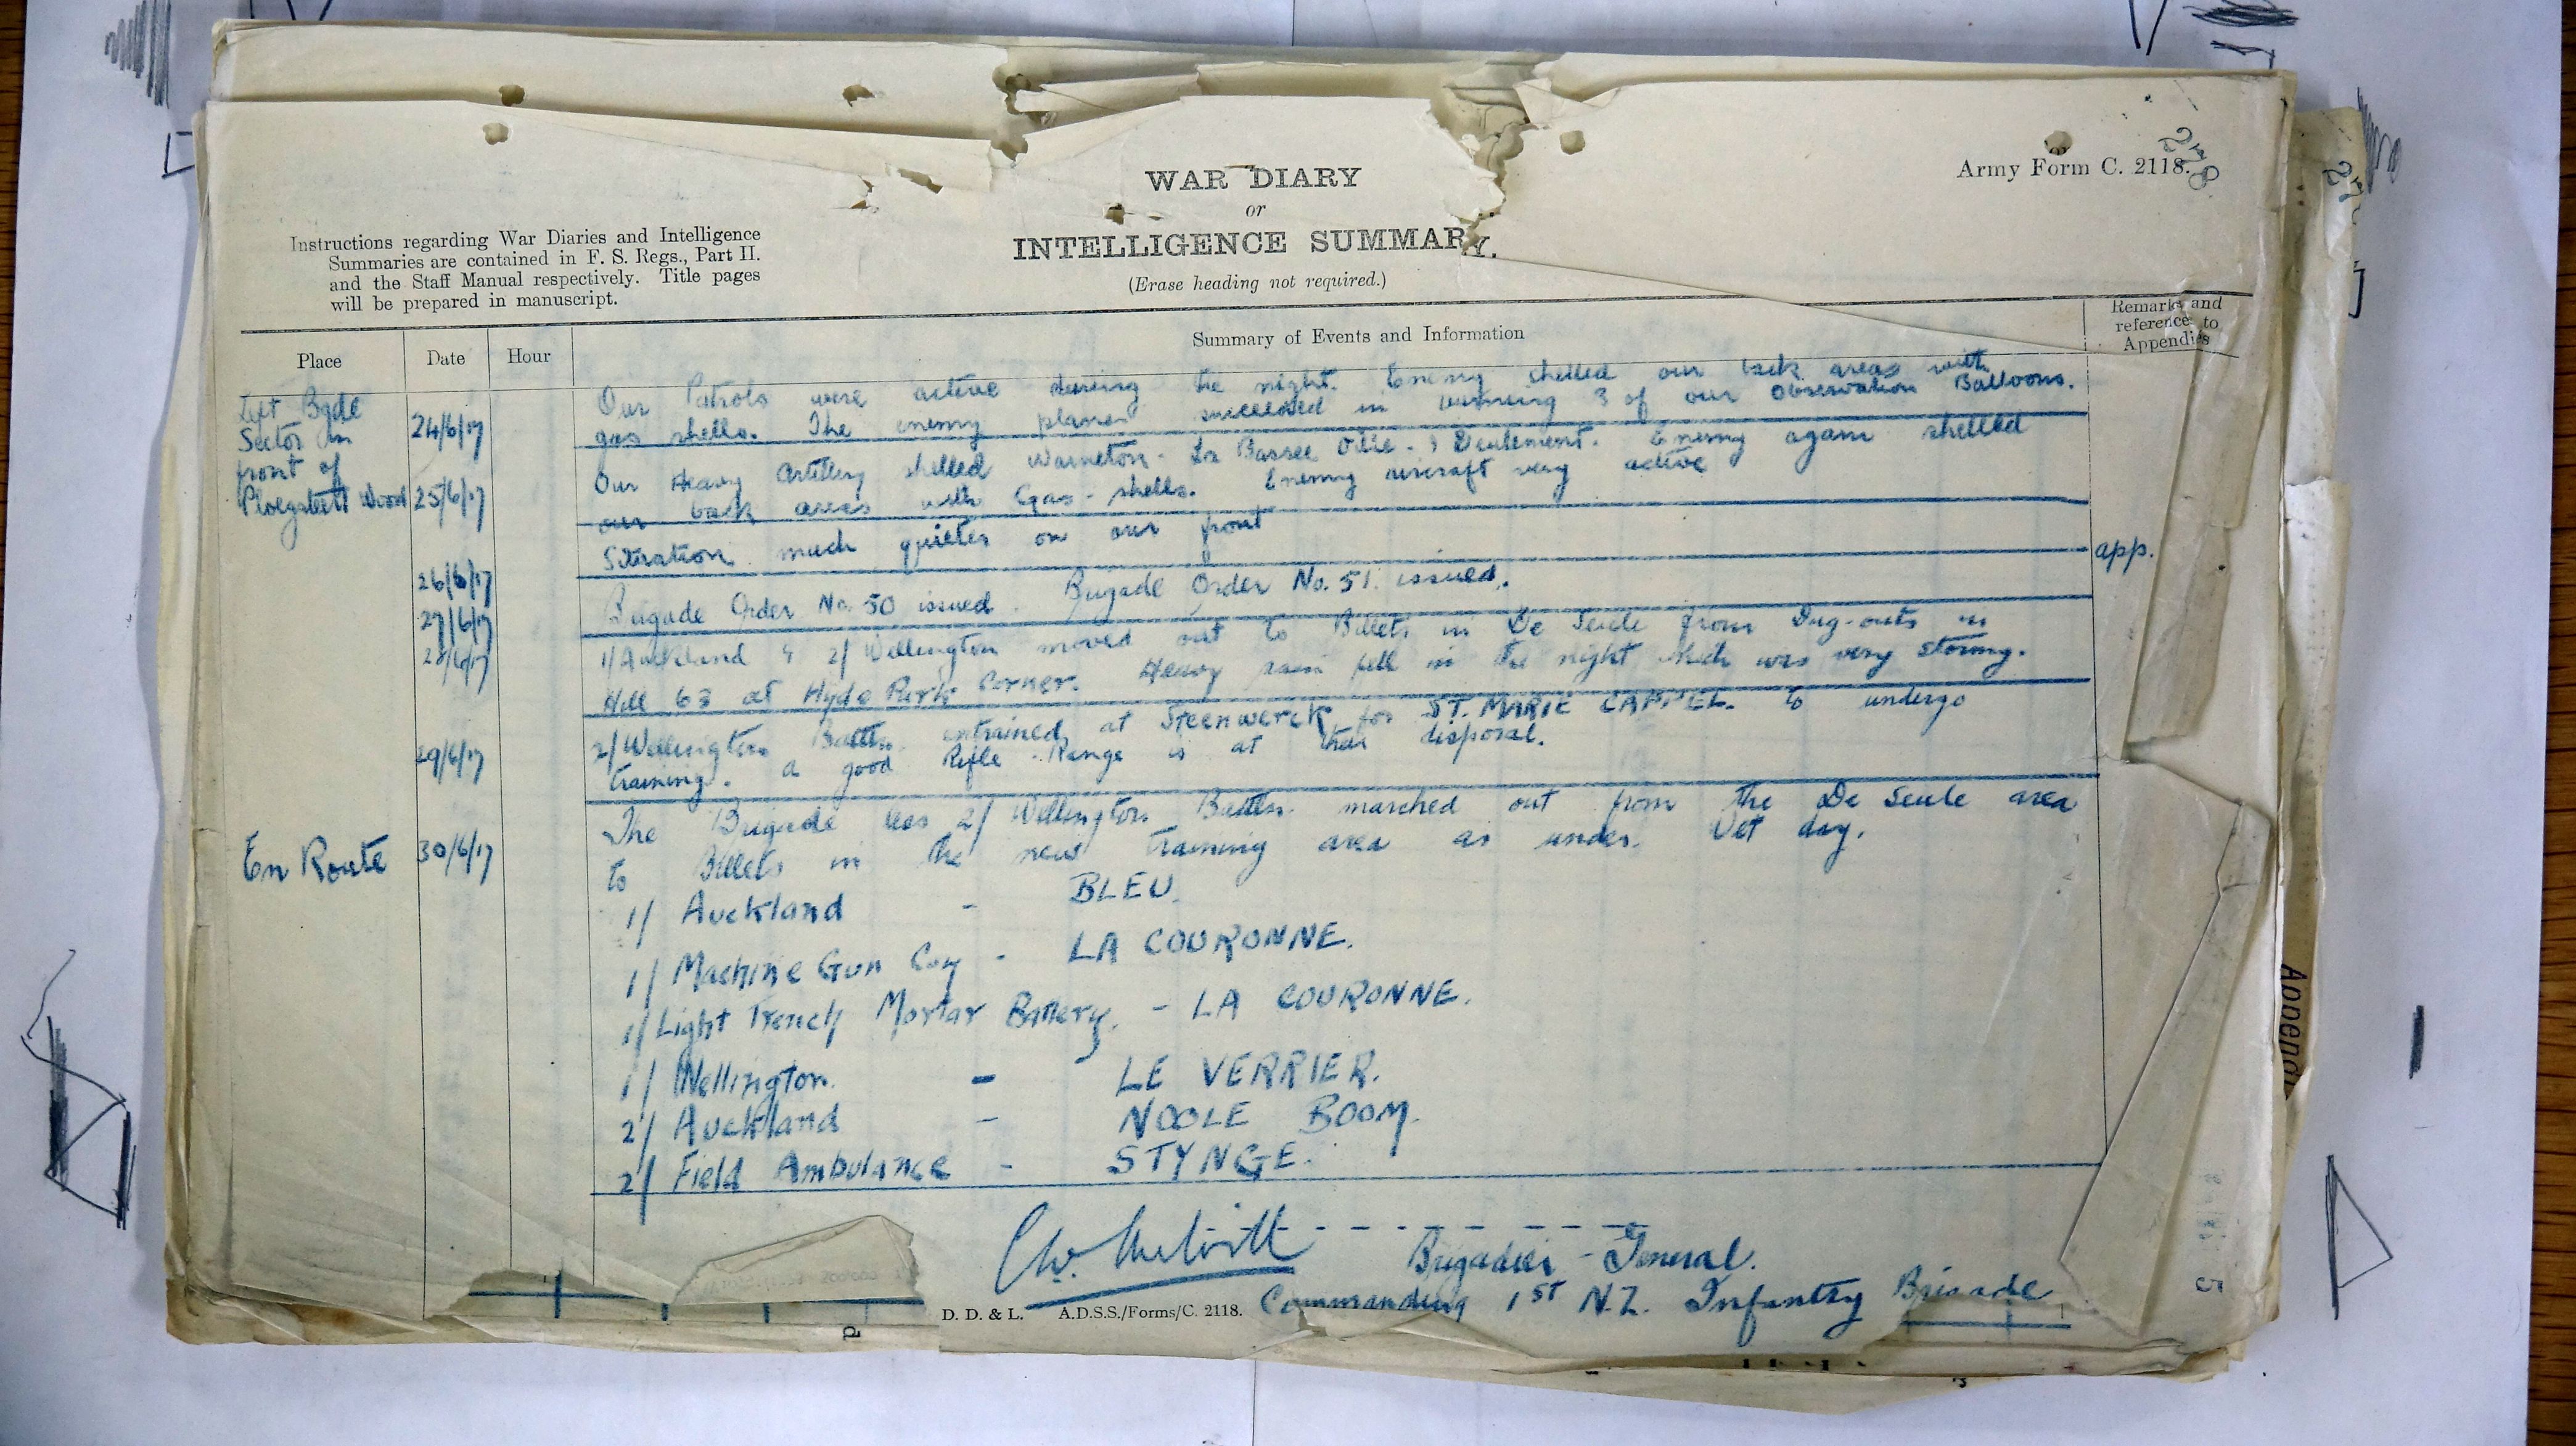 WAR DIARY
or
INTELLIGENCE SUMMARY.
(Erase heading not required.)
Army Form C. 2118.
278
Instructions regarding War Diaries and Intelligence
Summaries are contained in F. S. Regs., Part II.
and the Staff Manual respectively. Title pages
will be prepared in manuscript.
Place Date Hour Summary of Events and Information Remarks and
reference to
Appendices
Left Bgde
Sector in
front of
Ploegsteert Wood
24/6/17 Our Patrols were active during the night. Enemy shelled our back areas with
gas shells. The enemy planes succeeded in burning 3 of our Observation Balloons.
25/6/17 Our Heavy Artillery shelled Warneton - La Bassee Ville - & Deulemont. Enemy again shelled
our back areas with Gas - shells. Enemy aircraft very active
26/6/17 Situation much quieter on our front
27/6/17 Brigade Order No. 50 issued. Brigade Order No. 51. issued. app.
28/6/17 1/Auckland & 2/Wellington moved out to Billets in De Seule from Dug-outs in
Hill 63 at Hyde Park Corner. Heavy rain fell in the night which was very stormy.
29/6/17 2/Wellington Battn. entrained at Steenwerck for ST. MARIE CAPPEL. to undergo
training. a good Rifle - Range is at their disposal.
En Route 30/6/17 The Brigade less 2/Wellington Battn. marched out from the De Seule area
to Billets in the new training area as under. Wet day.
1/ Auckland - BLEU.
1/ Machine Gun Coy - LA COURONNE.
1/ Light Trench Mortar Battery. - LA COURONNE.
1/ Wellington. - LE VERRIER.
2/ Auckland - NOOLE BOOM.
2/ Field Ambulance - STYNGE.
CW. Melvill
Brigadier - General.
Commanding 1ST N.Z. Infantry Brigade
D. D. & L. A.D.S.S./Forms/C. 2118.